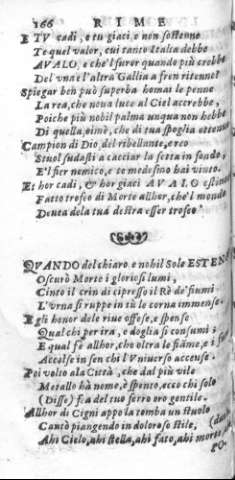 166 RIME
E TV cadi, e tu giaci, e non sostenne
Te quel valor, cui tanto Italia debbe
AVALO, e che'l furor quando più crebbe
De l'una e l'altra Gallia a fren ritenne?
Spiegar ben può superba homai le penne
La rea, che nova luce al Ciel accrebbe,
Poiche più nobil palma unqua non hebbe
Di quella, oimè, che di tua spoglia ottenne
Campion di Dio, del ribellante, ereo
Stuol sudasti a cacciar la setta in fondo,
E'l fier nemico, e te medesmo hai vinto.
Et hor cadi, & hor giaci AVALO estinto
Fatto trofeo di Morte allhor, che'l mondo
Devea de la tua destra esser trofeo
QVANDO del chiaro e nobil Sole ESTENSE
Oscurò Morte i gloriosi lumi,
Cinto il crin di cipresso il Rè de' fiumi
L'urna si ruppe in sù le corna immense.
Egli honor de le rive offese, e spense
Qual chi per ira, e doglia si consumi;
E qual fè allhor, che oltra le fiāme, e i fumi
Accolse in sen chi l'Vniverso accense.
Poi volto a la Città, che dal più vile
Metallo hà nome, è spento, ecco chi solo
(Disse) fea del tuo ferro oro gentile.
Allhor di Cigni appo la tomba un stuolo
Cantò piangendo in doloroso stile,
Ahi Cielo, ahi stella, ahi fato, ahi morte